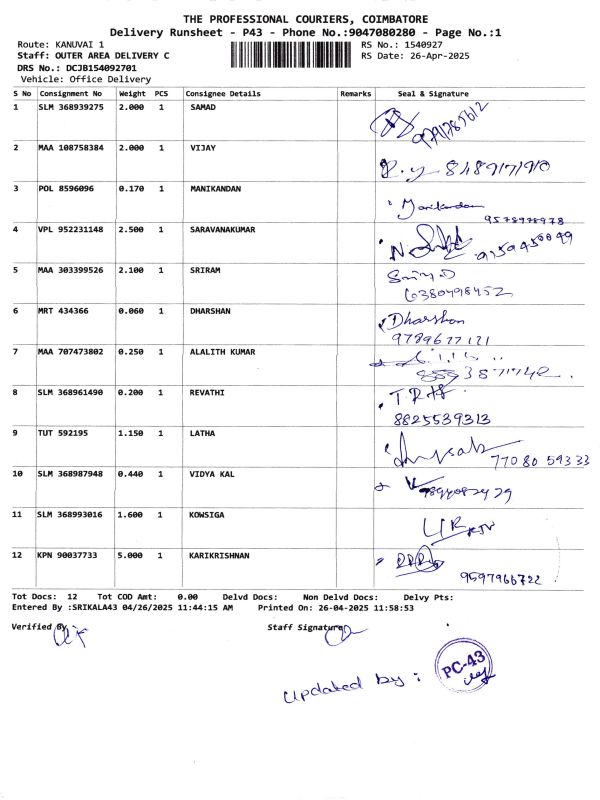 THE PROFESSIONAL COURIERS, COIMBATORE
Delivery Runsheet - P43 - Phone No.:9047080280 - Page No.:1
Route: KANUVAI 1 RS No.: 1540927
Staff: OUTER AREA DELIVERY C RS Date: 26-Apr-2025
DRS No.: DCJB154092701
Vehicle: Office Delivery
S No Consignment No Weight PCS Consignee Details Remarks Seal & Signature
1 SLM 368939275 2.000 1 SAMAD
2 MAA 108758384 2.000 1 VIJAY
3 POL 8596096 0.170 1 MANIKANDAN Manikandan
9578978978
4 VPL 952231148 2.500 1 SARAVANAKUMAR
5 MAA 303399526 2.100 1 SRIRAM
6380498452
6 MRT 434366 0.060 1 DHARSHAN Dharshan
9789677121
7 MAA 707473802 0.250 1 ALALITH KUMAR
8 SLM 368961490 0.200 1 REVATHI
8825539313
9 TUT 592195 1.150 1 LATHA
77080 59333
10 SLM 368987948 0.440 1 VIDYA KAL
11 SLM 368993016 1.600 1 KOWSIGA
12 KPN 90037733 5.000 1 KARIKRISHNAN
9597966722
Tot Docs: 12 Tot COD Amt: 0.00 Delvd Docs: Non Delvd Docs: Delvy Pts:
Entered By :SRIKALA43 04/26/2025 11:44:15 AM Printed On: 26-04-2025 11:58:53
Verified By Staff Signature
Updated by : PC-43